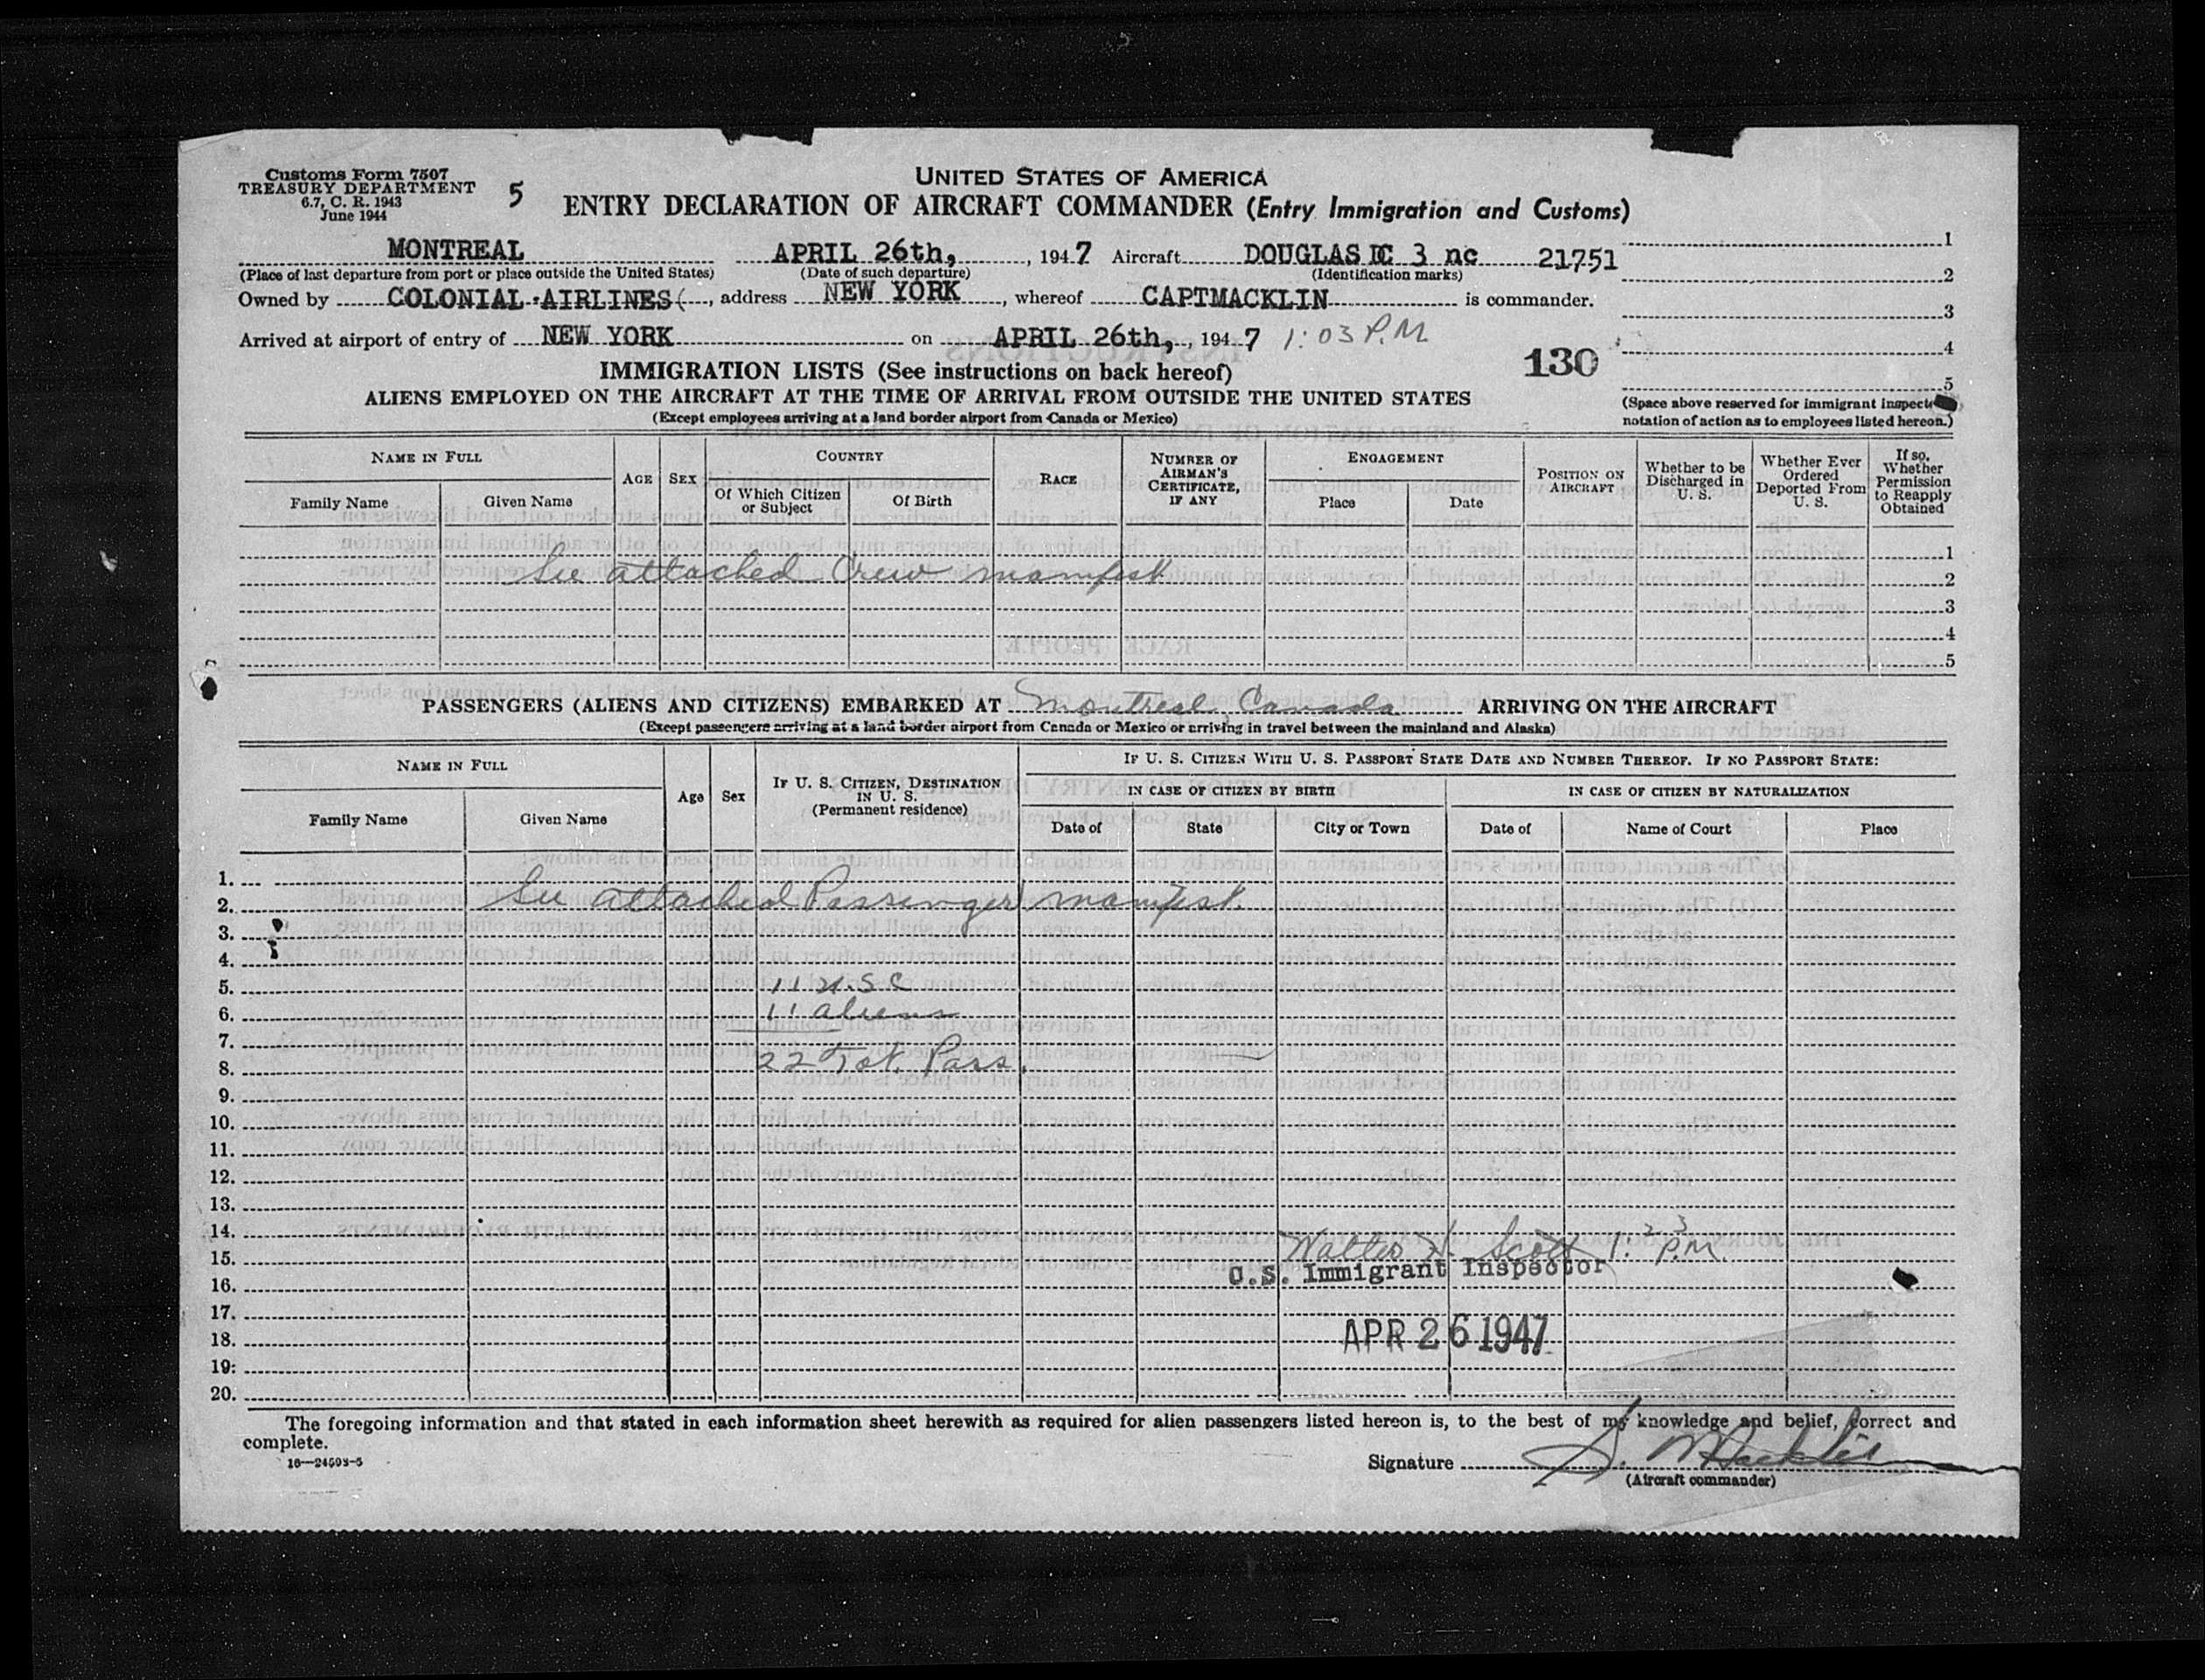 Customs Form 7507
TREASURY DEPARTMENT
6.7, C. R. 1943
June 1944
5
UNITED STATES OF AMERICA
ENTRY DECLARATION OF AIRCRAFT COMMANDER (Entry Immigration and Customs)
MONTREAL APRIL 26th, , 1947 Aircraft DOUGLAS DC 3 nc 21751
(Place of last departure from port or place outside the United States) (Date of such departure) (Identification marks)
Owned by COLONIAL AIRLINES( , address NEW YORK , whereof CAPTMACKLIN is commander.
Arrived at airport of entry of NEW YORK on APRIL 26th, , 1947 1:03 P.M.
1
2
3
4
5
130
(Space above reserved for immigrant inspect
notation of action as to employees listed hereon.)
IMMIGRATION LISTS (See instructions on back hereof)
ALIENS EMPLOYED ON THE AIRCRAFT AT THE TIME OF ARRIVAL FROM OUTSIDE THE UNITED STATES
(Except employees arriving at a land border airport from Canada or Mexico)
NAME IN FULL
Family Name Given Name
AGE SEX
COUNTRY
Of Which Citizen or Subject Of Birth
RACE
NUMBER OF AIRMAN'S CERTIFICATE, IF ANY
ENGAGEMENT
Place Date
POSITION ON AIRCRAFT
Whether to be Discharged in U. S.
Whether Ever Ordered Deported From U. S.
If so, Whether Permission to Reapply Obtained
1
See attached Crew manifest 2
3
4
5
PASSENGERS (ALIENS AND CITIZENS) EMBARKED AT Montreal, Canada ARRIVING ON THE AIRCRAFT
(Except passengers arriving at a land border airport from Canada or Mexico or arriving in travel between the mainland and Alaska)
NAME IN FULL
Family Name Given Name
Age Sex
IF U. S. CITIZEN, DESTINATION IN U. S.
(Permanent residence)
IF U. S. CITIZEN WITH U. S. PASSPORT STATE DATE AND NUMBER THEREOF. IF NO PASSPORT STATE:
IN CASE OF CITIZEN BY BIRTH IN CASE OF CITIZEN BY NATURALIZATION
Date of State City or Town Date of Name of Court Place
1.
2. See attached Passenger manifest.
3.
4.
5. 11 U.S.C
6. 11 aliens
7.
8. 22 Tot. Pass.
9.
10.
11.
12.
13.
14.
15. Walter H. Scott 1:23 P.M.
U.S. Immigrant Inspector
16.
17.
18. APR 26 1947
19.
20.
The foregoing information and that stated in each information sheet herewith as required for alien passengers listed hereon is, to the best of my knowledge and belief, correct and
complete.
16—24593-5
Signature S. Macklin
(Aircraft commander)